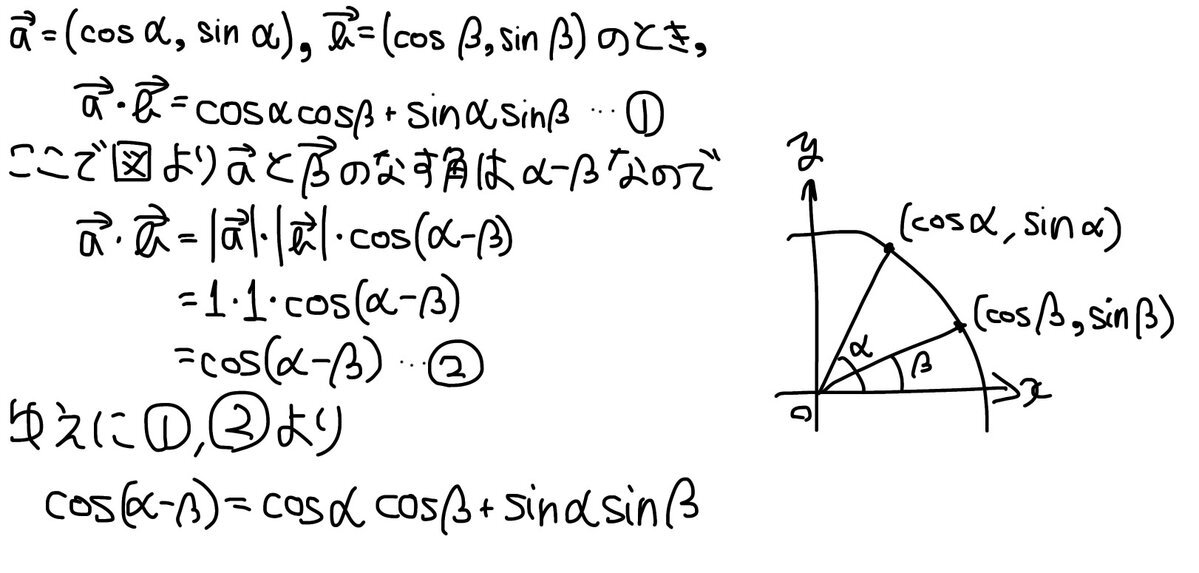 a⃗=(cosα, sinα), b⃗=(cosβ, sinβ)のとき,
a⃗・b⃗=cosαcosβ+sinαsinβ …①
ここで図よりa⃗とβ⃗のなす角はα-βなので
a⃗・b⃗=|a⃗|・|b⃗|・cos(α-β)
=1・1・cos(α-β)
=cos(α-β) …②
ゆえに①,②より
cos(α-β)=cosαcosβ+sinαsinβ
y
(cosα, sinα)
(cosβ, sinβ)
α
β
O
x